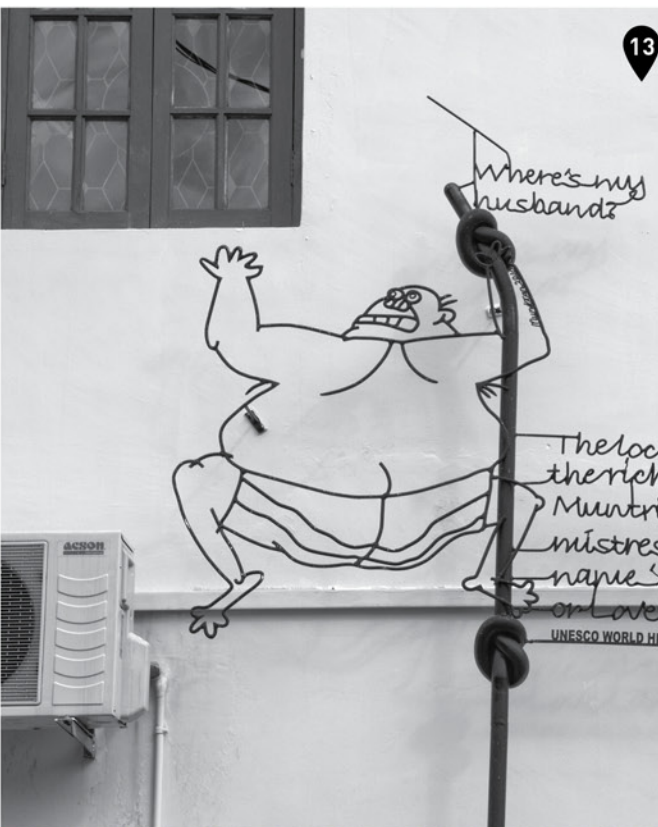 13
Where's my
husband?
The loc
the rich
Muntri
mistres
name '
or Love
UNESCO WORLD HE
acson